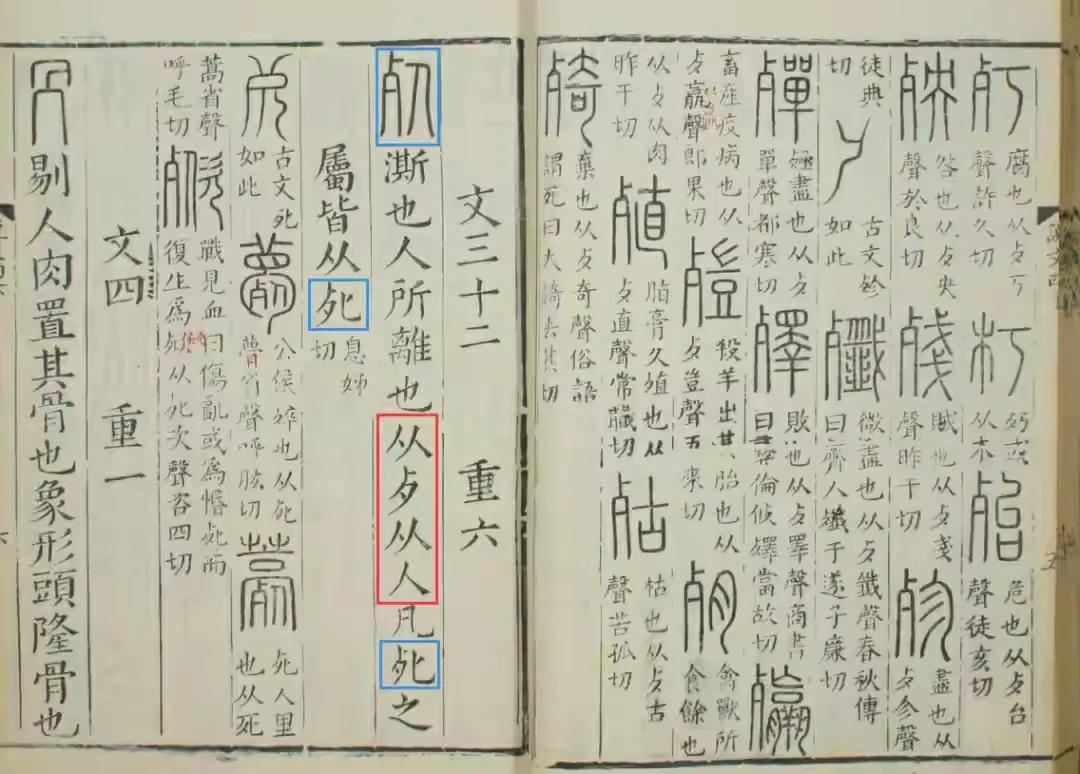 㱙腐也从歺丂聲許久切朽㱙或从木殆危也从歺台聲徒亥切
殃咎也从歺央聲於良切殘賊也从歺戔聲昨干切殄盡也从歺㐱聲
徒典切古文殄如此殲微盡也从歺韱聲春秋傳曰齊人殲于遂子廉切
殫殛盡也从歺單聲都寒切殬敗也从歺睪聲商書曰彝倫攸殬當故切㱻
畜産疫病也从歺羸聲郎果切𣩄殺羊出其胎也从歺豈聲五來切𣦼禽獸所食餘也
从歺从肉昨干切殖脂膏久殖也从歺直聲常職切㱠枯也从歺古聲苦孤切
𣨞棄也从歺奇聲俗語謂死曰大𣨞去其切
文三十二 重六
死澌也人所離也从歺从人凡死之
屬皆从死息姊切
古文死如此薨公侯𣨛也从死瞢省聲呼肱切薧死人里也从死
蒿省聲呼毛切㱴戰見血曰傷亂或爲惽死而復生爲㱴从死次聲咨四切
文四 重一
冎剔人肉置其骨也象形頭隆骨也